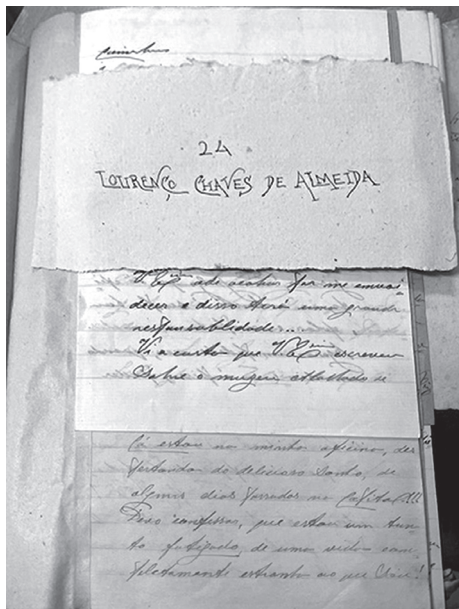 Coimbra
24
LOURENÇO CHAVES DE ALMEIDA
V. Exª ade acabar por me envai-
decer e disso terá uma grande
responsablidade...
Vi a carta que V. Exª escreveu
Sobre o
Cá estou na minha oficina, des
pertando do delicioso sonho, de
alguns dias passados na Capital!!!
Devo confessar, que estou um tan-
to fatigado, de uma vida com-
pletamente estranha ao que